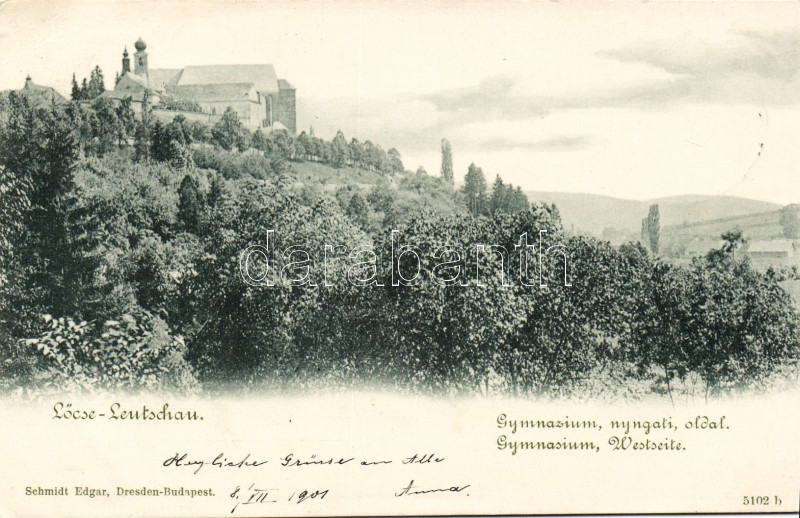 darabanth
Lőcse-Leutschau.
Gymnazium, nyngati, oldal.
Gymnasium, Westseite.
Herzliche Grüsse an Alle
Schmidt Edgar, Dresden-Budapest.
8/VII 1901 Anna
5102 b